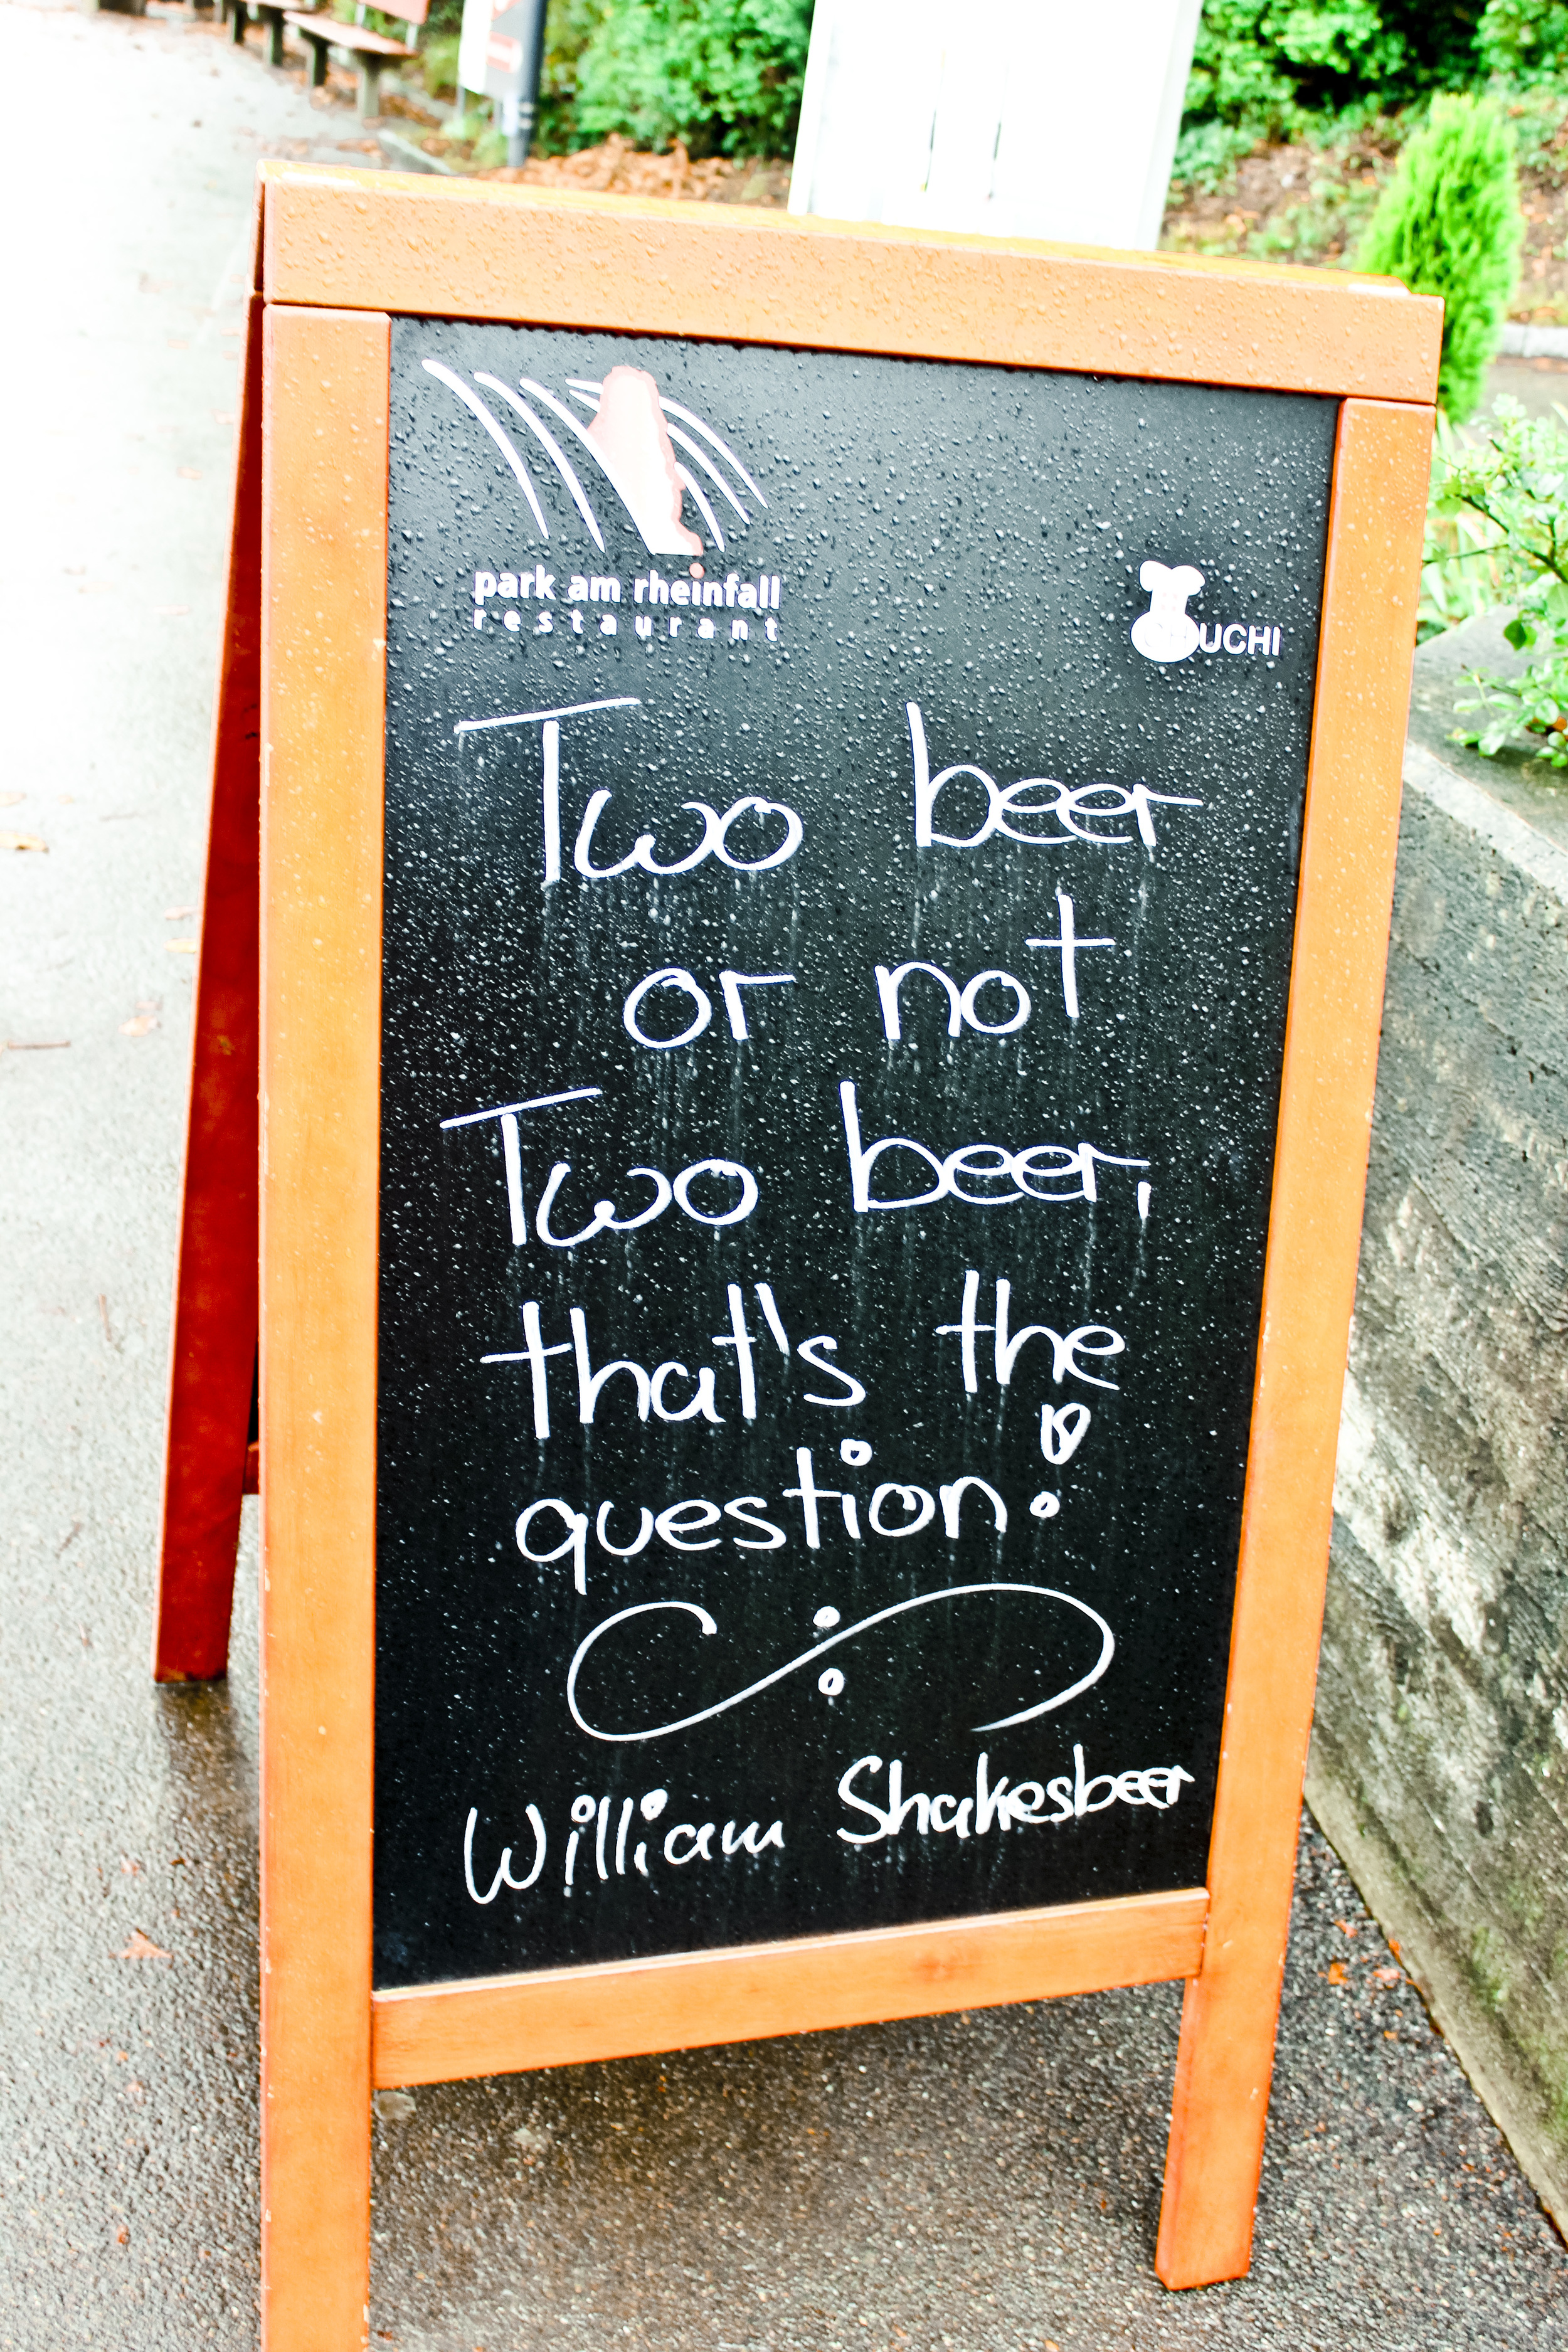 park am rheinfall
restaurant
UCHI
Two beer
or not
Two beer,
that's the
question!
William Shakesbeer